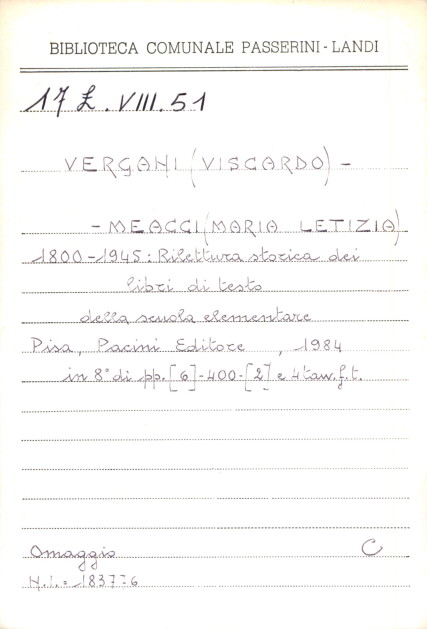 BIBLIOTECA COMUNALE PASSERINI - LANDI
17 L. VIII. 51
VERGANI (VISCARDO) -
- MEACCI (MARIA LETIZIA)
1800-1945: Rilettura storica dei
libri di testo
della scuola elementare
Pisa, Pacini Editore , 1984
in 8° di pp. [6]-400-[2] e 4 tavv. f. t.
Omaggio C
N.i.=